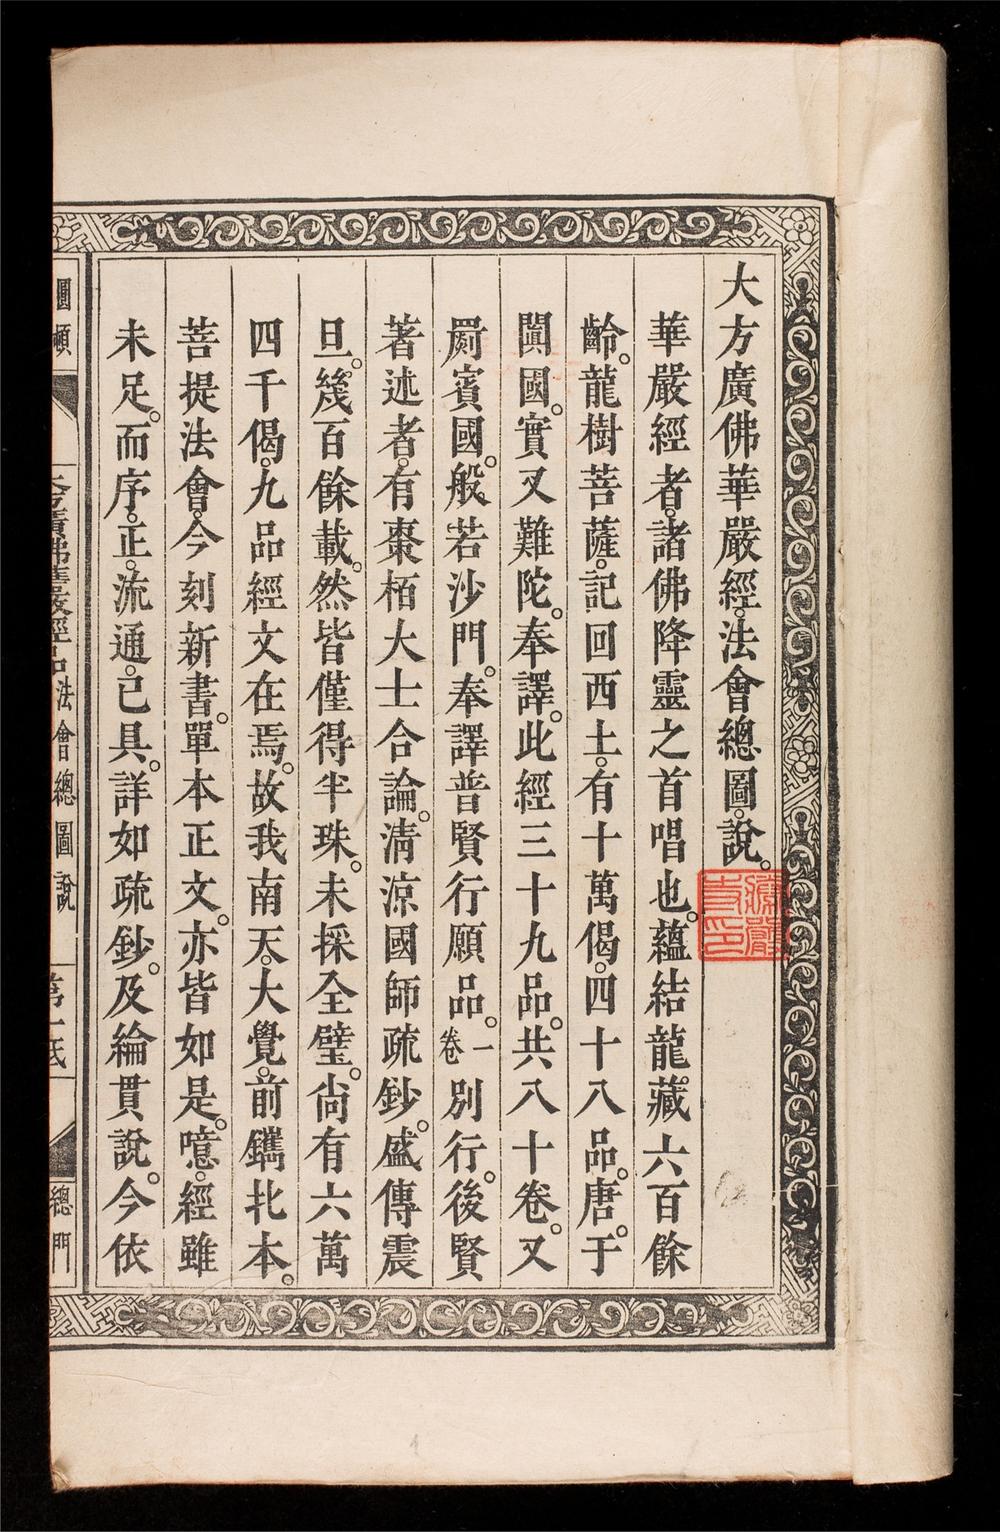 大方廣佛華嚴經。法會總圖。說。
華嚴經者。諸佛降靈之首唱也。蘊結龍藏六百餘
齡。龍樹菩薩。記回西土。有十萬偈。四十八品。唐。于
闐國。實叉難陀。奉譯。此經三十九品。共八十卷。又
罽賓國。般若沙門。奉譯普賢行願品。一卷別行。後賢
著述者。有棗栢大士合論。清涼國師疏鈔。盛傳震
旦。幾百餘載。然皆僅得半珠。未採全璧。尙有六萬
四千偈。九品經文在焉。故我南天。大覺。前鐫北本。
菩提法會。今刻新書。單本正文。亦皆如是。噫。經雖
未足。而序。正。流通。已具。詳如疏鈔。及綸貫說。今依
圓頓
大方廣佛華嚴經品法會總圖說
第一紙
總門